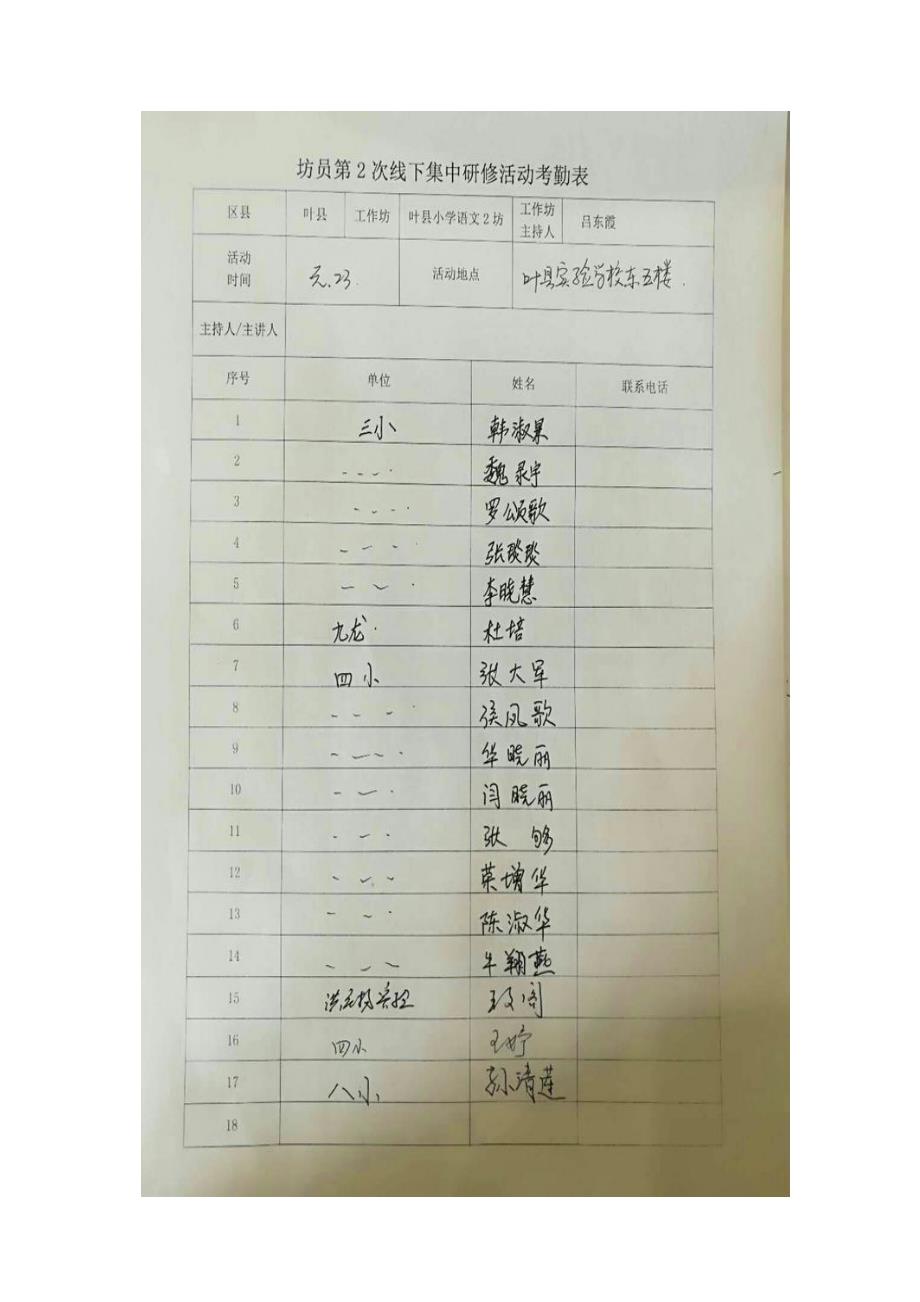 坊员第2次线下集中研修活动考勤表
区县 叶县 工作坊 叶县小学语文2坊 工作坊主持人 吕东霞
活动时间 元.23. 活动地点 叶县实验学校东五楼.
主持人/主讲人
序号 单位 姓名 联系电话
1 三小 韩淑果
2 魏录宇
3 罗颂歌
4 张琰琰
5 李晓慧
6 九龙. 杜培
7 四小 张大军
8 侯凤歌
9 华晓丽
10 闫晓丽
11 张
12 荣增华
13 陈淑华
14 牛翔燕
15
16 四小 王好
17 八小 孙清莲
18